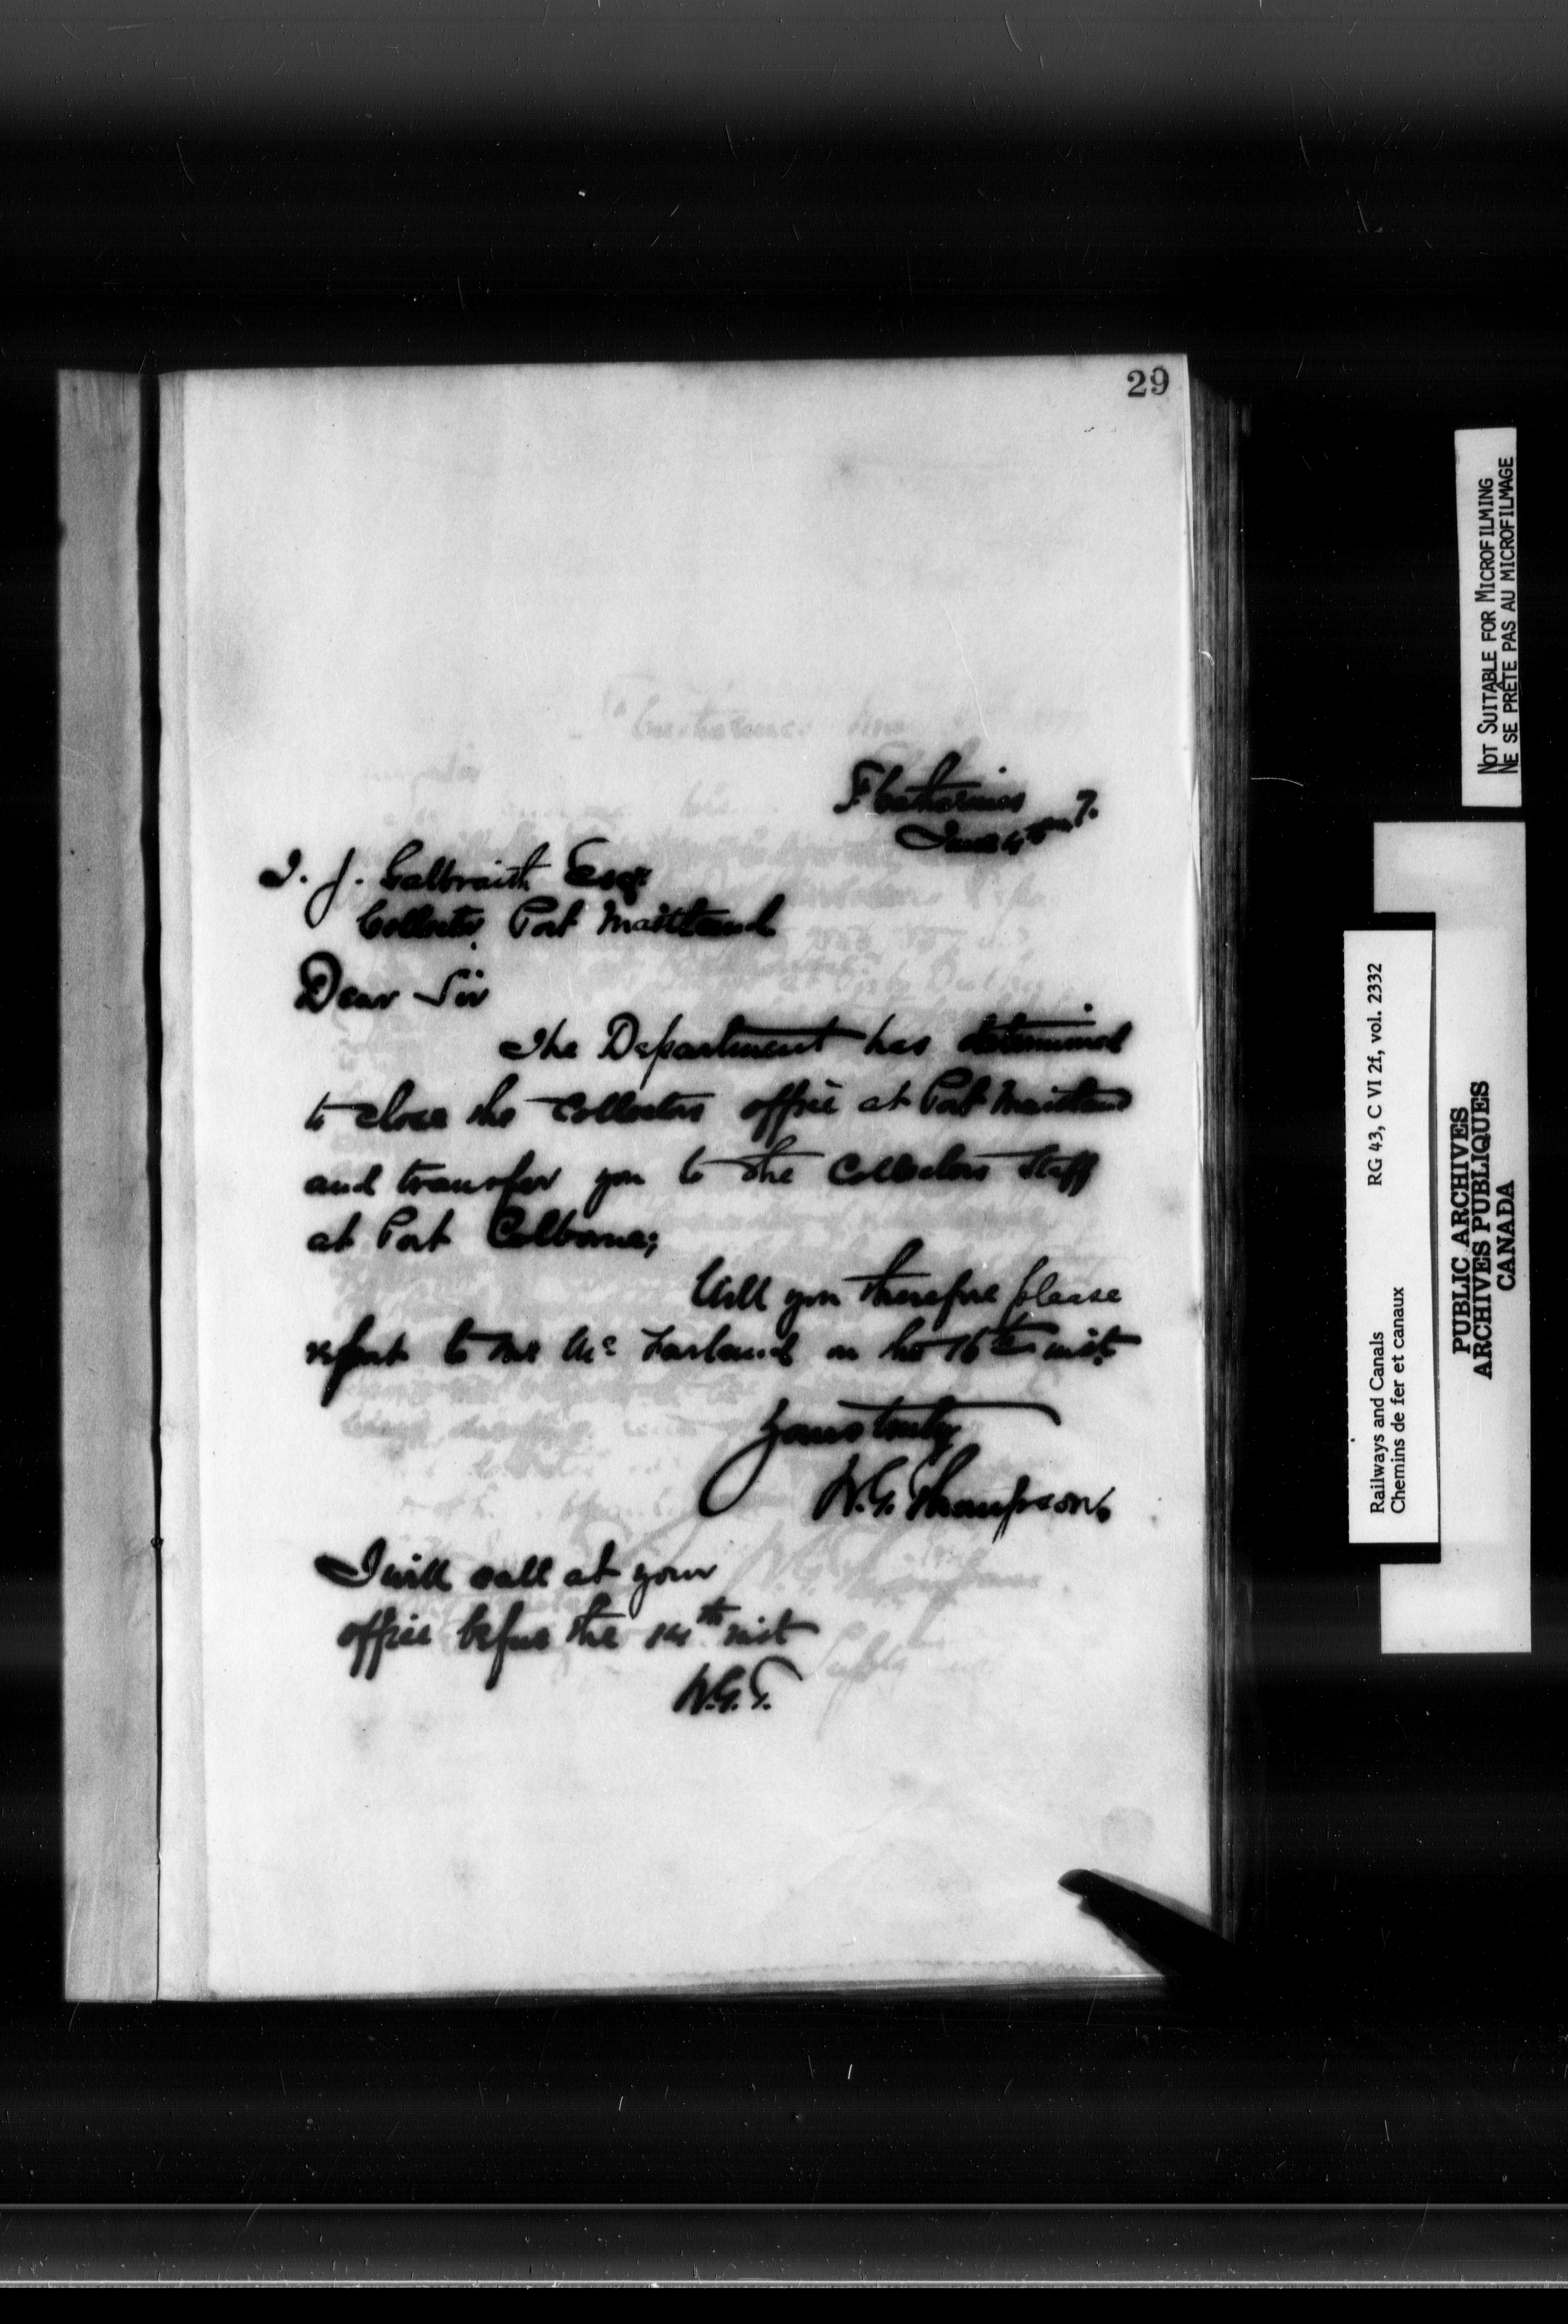 29
St Catharines
June 4th 7.
T. J. Galbraith Esqr
Collector Port Maitland
Dear Sir
The Department has determined
to close the Collectors office at Port Maitland
and transfer you to the Collectors Staff
at Port Colborne;
Will you therefore please
report to Mr McFarland on the 16th inst.
Yours truly
W.G. Thompson
I will call at your
office before the 14th inst
W.G.T.
NOT SUITABLE FOR MICROFILMING
NE SE PRÊTE PAS AU MICROFILMAGE
Railways and Canals RG 43, C VI 2f, vol. 2332
Chemins de fer et canaux
PUBLIC ARCHIVES
ARCHIVES PUBLIQUES
CANADA